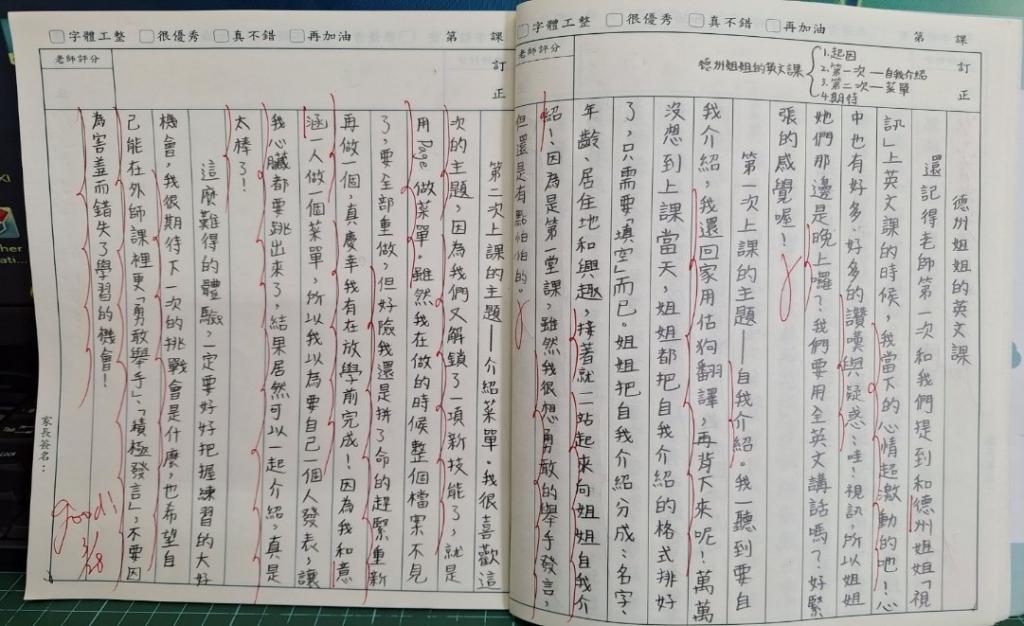 □字體工整 □很優秀 □真不錯 □再加油 第 課
訂正
老師評分
德州姐姐的英文課
1.起因
2.第一次—自我介紹
3.第二次—菜單
4.期待
德州姐姐的英文課
還記得老師第一次和我們提到和德州姐姐「視
訊」上英文課的時候,我當下的心情超激動的吔!心
中也有好多、好多的讚嘆與疑惑:哇!視訊,所以姐姐
她們那邊是晚上囉?我們要用全英文講話嗎?好緊
張的感覺喔!
第一次上課的主題——自我介紹。我一聽到要自
我介紹,我還回家用估狗翻譯,再背下來呢!萬萬
沒想到上課當天,姐姐都把自我介紹的格式排好
了,只需要「填空」而已。姐姐把自我介紹分成:名字、
年齡、居住地和興趣,接著就一一站起來向姐姐自我介
紹!因為是第一堂課,雖然我很想勇敢的舉手發言,
但還是有點怕怕的。
□字體工整 □很優秀 □真不錯 □再加油 第 課
訂正
老師評分
第二次上課的主題——介紹菜單。我很喜歡這
次的主題,因為我們又解鎖了一項新技能了,就是
用Page做菜單。雖然我在做的時候整個檔案不見
了,要全部重做,但好險我還是拼了命的趕緊重新
再做一個,真慶幸我有在放學前完成!因為我和意
涵一人做一個菜單,所以我以為要自己一個人發表,讓
我心臟都要跳出來了,結果居然可以一起介紹,真是
太棒了!
這麼難得的體驗,一定要好好把握練習的大好
機會,我很期待下一次的挑戰會是什麼,也希望自
己能在外師課裡更「勇敢舉手」、「積極發言」,不要因
為害羞而錯失了學習的機會!
家長簽名:
good!
3/28